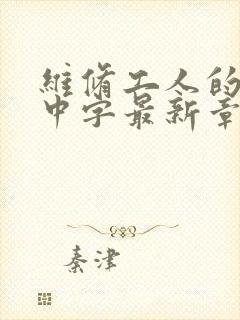 維脩工人的
中字最新章
秦津